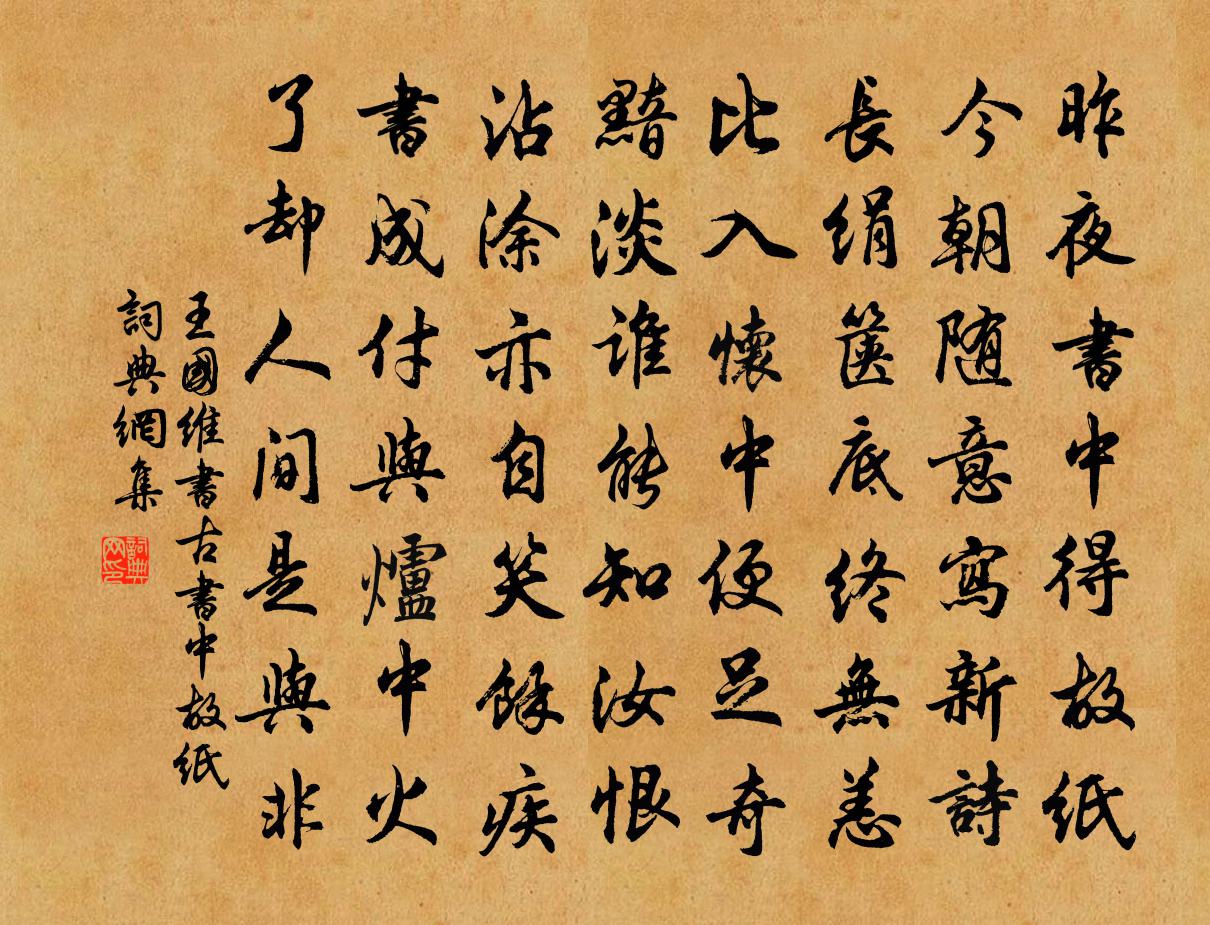 昨夜書中得故紙
今朝随意寫新詩
長絹篋底終無恙
比入懷中便足奇
黯淡谁能知汝恨
沾涂亦自笑餘疾
書成付與爐中火
了却人間是與非
王國維書古書中故紙
詞典網集
詞典网印